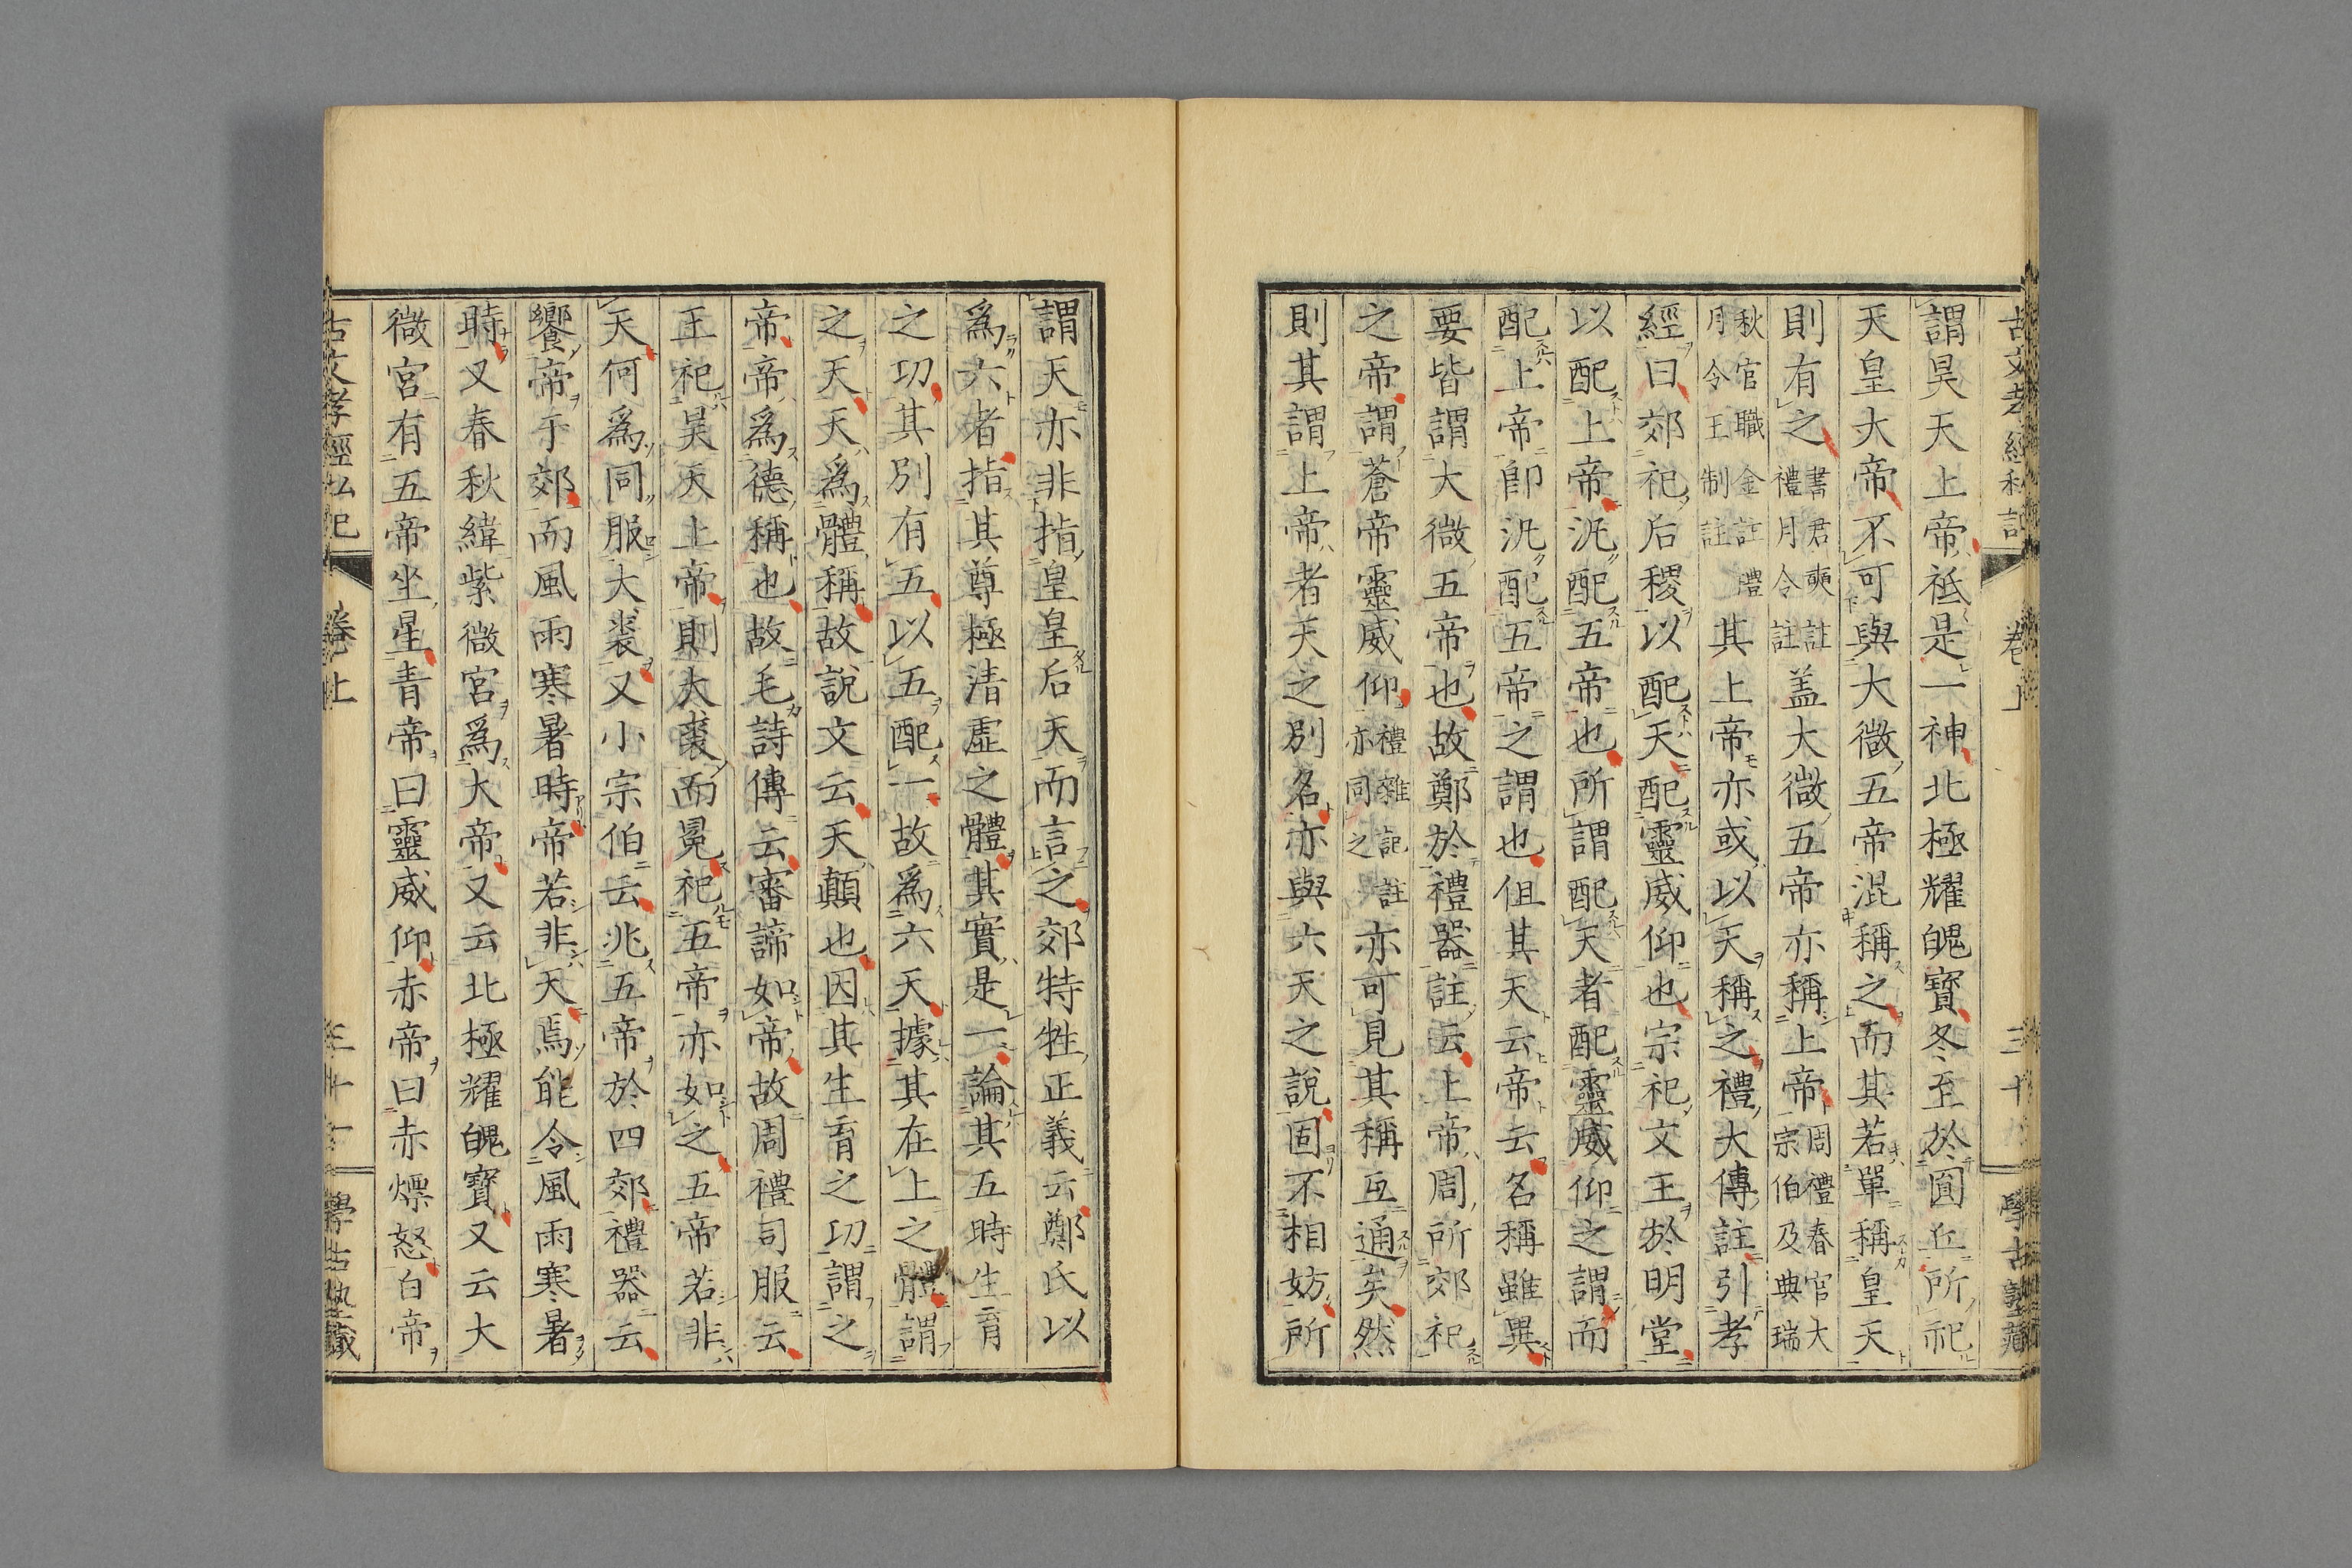 謂昊天上帝祗是一神北極耀魄寶冬至於圜丘所祀
天皇大帝不可與大微五帝混稱之而其若單稱皇天
則有之書君奭註禮月令註蓋大微五帝亦稱上帝周禮春官大宗伯及典瑞
秋官職金註禮月令王制註其上帝亦或以天稱之禮大傳註引孝
經曰郊祀后稷以配天配靈威仰也宗祀文王於明堂
以配上帝汎配五帝也所謂配天者配靈威仰之謂而
配上帝卽汎配五帝之謂也但其天云帝云名稱雖異
要皆謂大微五帝也故鄭於禮器註云上帝周所郊祀
之帝謂蒼帝靈威仰禮雜記註亦同之亦可見其稱互通矣然
則其謂上帝者天之別名亦與六天之說固不相妨所
謂天亦非指皇皇后天而言之郊特牲正義云鄭氏以
爲六者指其尊極清虛之體其實是一論其五時生育
之功其別有五以五配一故爲六天據其在上之體謂
之天天爲體稱故說文云天顛也因其生育之功謂之
帝帝爲德稱也故毛詩傳云審諦如帝故周禮司服云
王祀昊天上帝則大裘而冕祀五帝亦如之五帝若非
天何爲同服大裘又小宗伯云兆五帝於四郊禮器云
饗帝于郊而風雨寒暑時帝若非天焉能令風雨寒暑
時又春秋緯紫微宮爲大帝又云北極耀魄寶又云大
微宮有五帝坐星青帝曰靈威仰赤帝曰赤熛怒白帝
古文孝經私記 卷上 學古塾藏